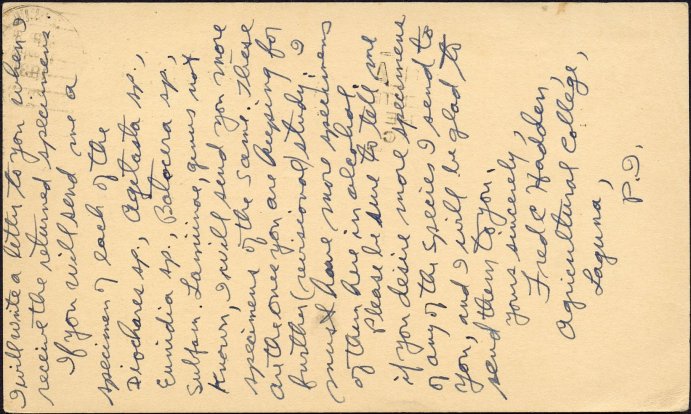 I will write a letter to you when I
receive the returned specimens.
If you will send me a
specimen of each of the
Diochares sp., Agitasta sp.,
Eunidia sp., Batocera sp.,
Subfam. Lamiinae, genus not
known, I will send you more
specimens of the same. These
are the ones you are keeping for
further (revisional) study. I
must have more specimens
of them here in alcohol.
Please be sure to tell me
if you desire more specimens
of any of the species I send to
you, and I will be glad to
send them to you.
Yours sincerely,
Fred C Hadden,
Agricultural College,
Laguna,
P.I.